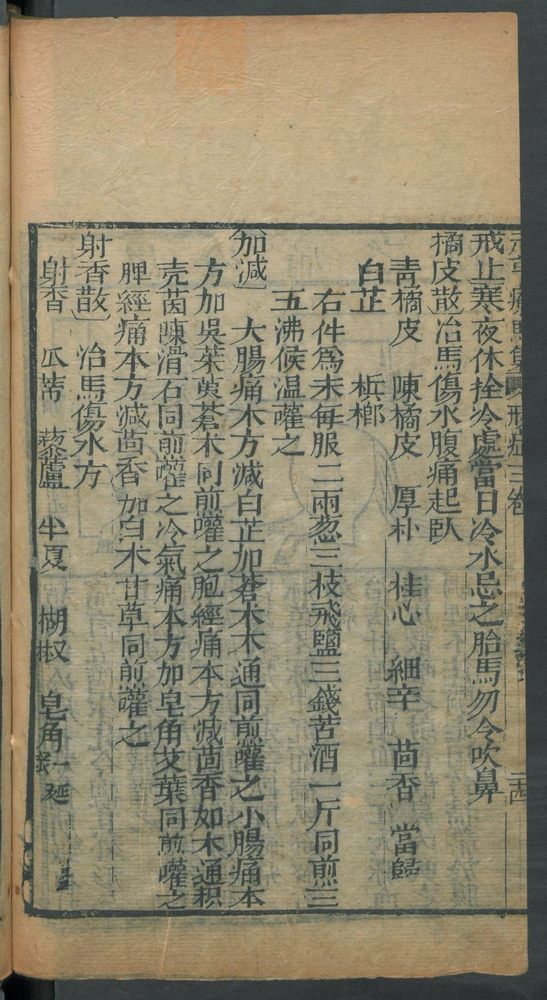 元亨療馬集 形症三卷
戒止寒夜休拴冷處當日冷水忌之胎馬勿令吹鼻
橘皮散治馬傷水腹痛起臥
青橘皮 陳橘皮 厚朴 桂心 細辛 茴香 當歸
白芷 檳榔
右件爲末每服二兩葱三枝飛鹽三錢苦酒一斤同煎三
五沸候温嚾之
加減 大腸痛本方減白芷加蒼术木通同煎嚾之小腸痛本
方加吳茱萸蒼术同煎嚾之胞經痛本方減茴香加木通枳
壳茵陳滑石同前嚾之冷氣痛本方加皂角艾葉同煎嚾之
脾經痛本方減茴香加白术甘草同前嚾之
射香散 治馬傷水方
射香 瓜蒂 藜蘆 半夏 胡椒 皂角